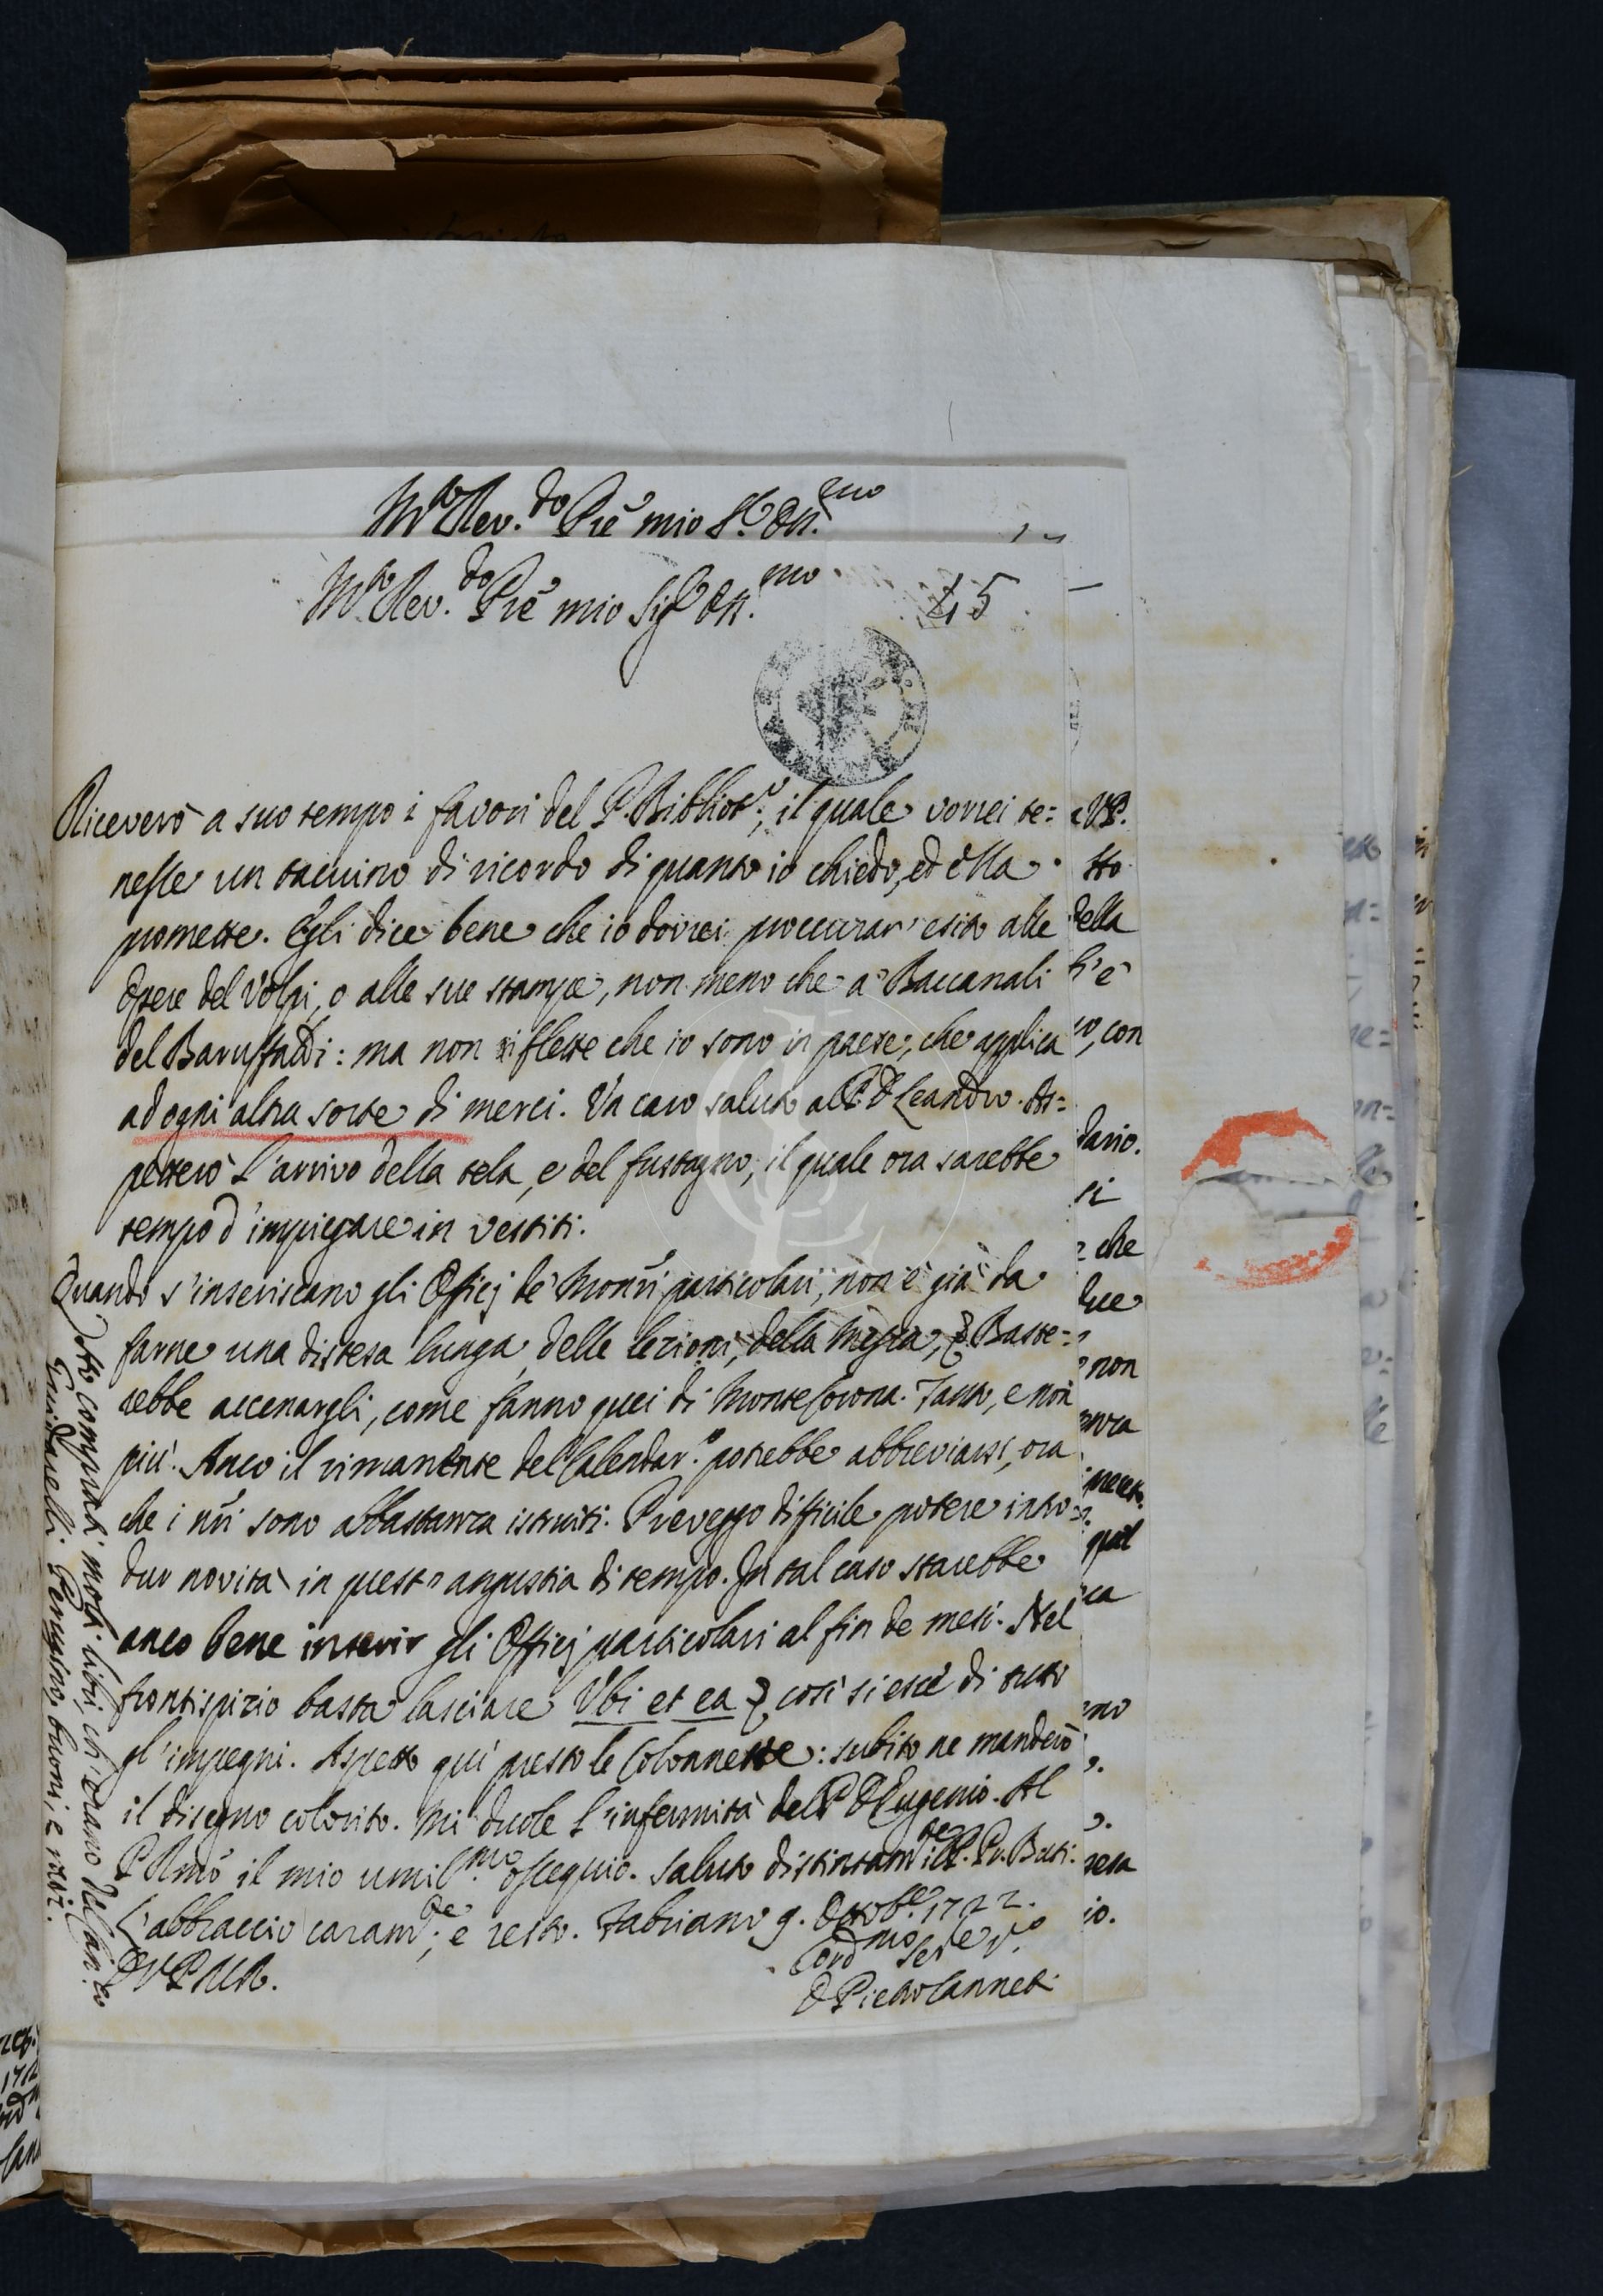 M.to Rev.do Prẽ mio S.r Oss.mo
M.to Rev.do Prẽ mio Sig.r Oss.mo
45
Riceverò a suo tempo i favori del P. Bibliot.o; il quale vorrei te=
nesse un taccuino di ricordo di quanto io chiedo, ed ella
promette. Egli dice bene che io dovrei proccurar esito alle
Opere del Volpi, o alle sue stampe, non meno che a' Baccanali
del Baruffaldi: ma non riflette che io sono in paese, che applica
ad ogni altra sorte di merci. Un caro saluto al P. D. Leandro. As=
petterò l'arrivo della tela, e del fustagno, il quale ora sarebbe
tempo d'impiegare in vestiti.
Quando s'inseriscano gli Officj de' Monrĩ particolari, non è già da
farne una distesa lunga delle lezioni, della Messa, &. Baste=
rebbe accenargli, come fanno quei di Monte Corona. Tanto, e non
più. Anco il rimanente del Calendar.o potrebbe abbreviarsi, ora
che i nrĩ sono abbastanza istruiti. Preveggo difficile potere intro=
dur novità in questa angustia di tempo. In tal caso starebbe
anco bene inserir gli Officj particolari al fin de mesi. Nel
frontispizio basta lasciare Ubi et ea &, così si esce di tutti
gl'impegni. Aspetto qui presto le Colonnette: subito ne manderò
il disegno colorito. Mi duole l'infermità del P. D. Eugenio. Al
P. Rmõ il mio umil.mo ossequio. Saluto distintam.te il P. Pr. Buti:
L'abbraccio caram.te; e resto. Fabriano 9. Ottob.e 1722.
D V P M R.
Cord.mo Ser.e V.o
D. Pietro Canneti
Ho comprati molti libri, ch'erano del Can.co
Guidarelli. Peraltro buoni, e rari.
e VP.
tto
della
h'è
io, con
dario.
si
che
due
non
anza
ica